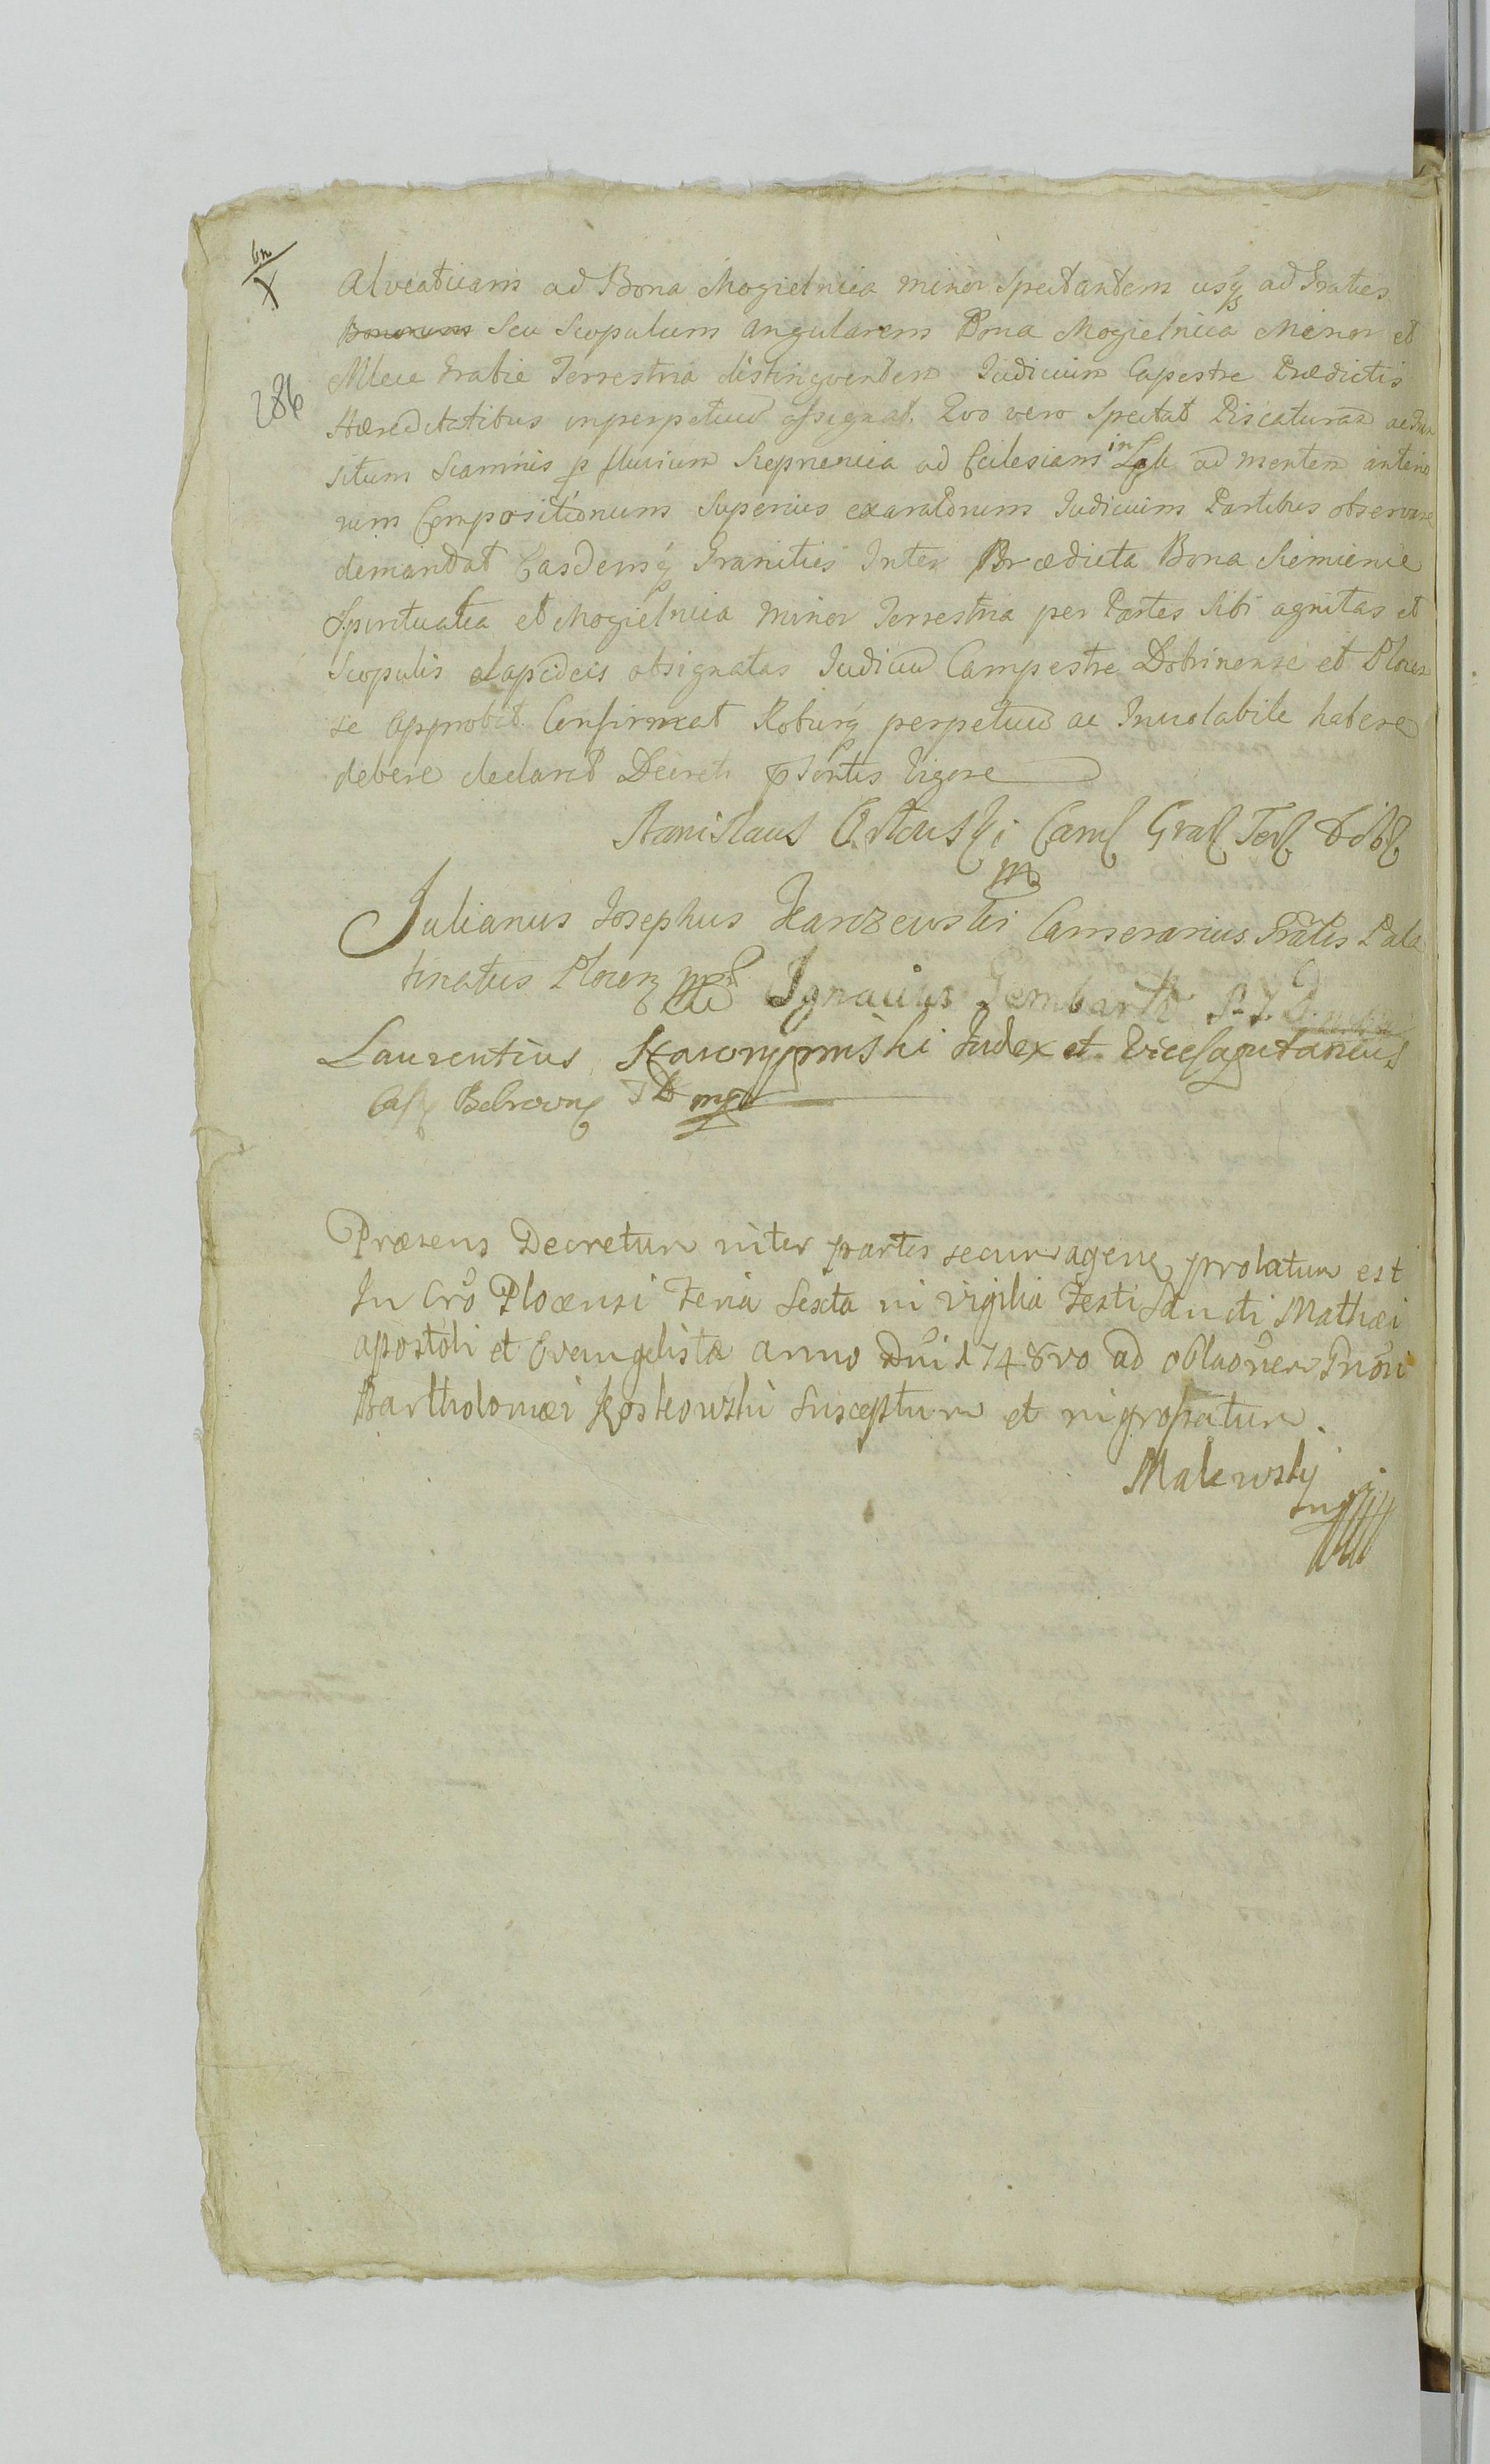 6n
X
286
Alveaticam ad Bona Mogielnica minor Spectantem usq ad Graties
Bonorum Seu Scopulum angularem Bona Mogielnica Minor et
Terrestria distingventem Judicium Capestre Prædictis
Hæreditatibus inperpetuum assignat. Quo vero Spectat Piscaturam ac Tran
situm Scaminis p fluvium Skrpnenica ad Ecclesiam in Ligk ad mentem anterio
rum Compositionum Superius exaratorum Judicium Partibus observare
demandat Easdemq Granities Inter Prædicta Bona Siemienie
Spiritualia et Mogielnica minor Terrestria per Partes Sibi agnitas et
Scopulis elapideis assignatas Judicium Campestre Dobrinense et Plocen
se approbat Confirmat Roburq perpetuum ac Inviolabile habere
debere declarat Decreti psentis Vigore
Stanislaus Cam Gral Ter Dob
mp
Julianus Josephus Camerarius Grãlis Pala
tinatus Plocen mp Ignacius Gembart
Laurentius Judex et Vicesagutaneus
Cast Bobrown mp
Præsens Decretum inter partes secum agens prolatum est
In Crõ Plocensi Feria Sexta in vigilia Festi Sancti Mathæi
apostoli et Evangelistæ anno Dñi 1748vo ad oblãonem Gnõsi
Bartholomæi Koskowski Susceptum et ingrossatum.
Malewsky
mp